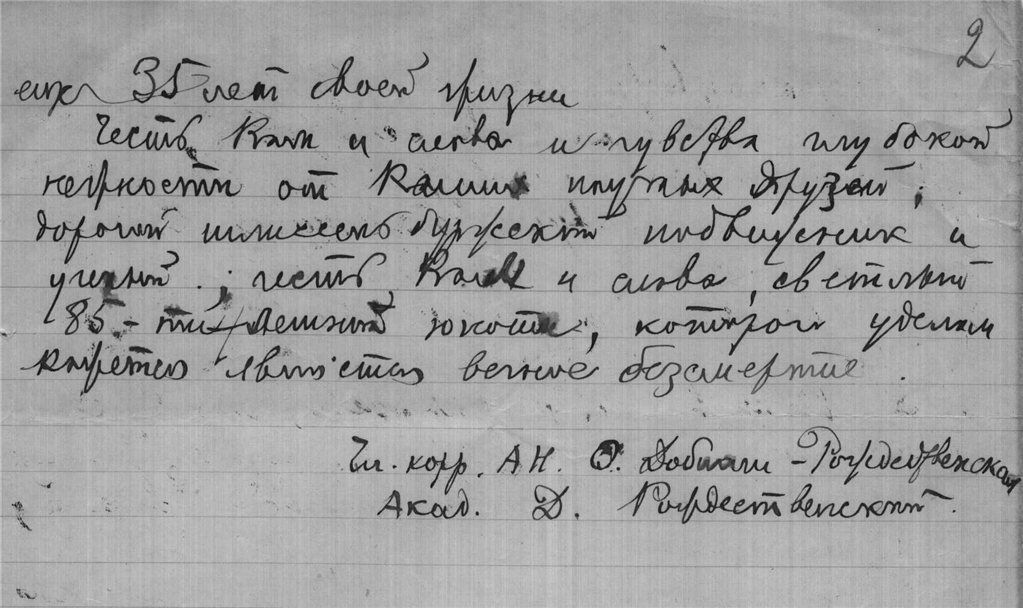 2
еще 35 лет своей жизни
Честь Вам и слава и чувства глубокой
нежности от Ваших научных друзей,
дорогой шлиссельбуржский подвижник и
ученый; честь Вам и слава, светлый
85-ти летний юноша, которого уделом
кажется является вечное безсмертие.
Чл. корр. АН. О. Добиаш-Рождественская
Акад. Д. Рождественский.